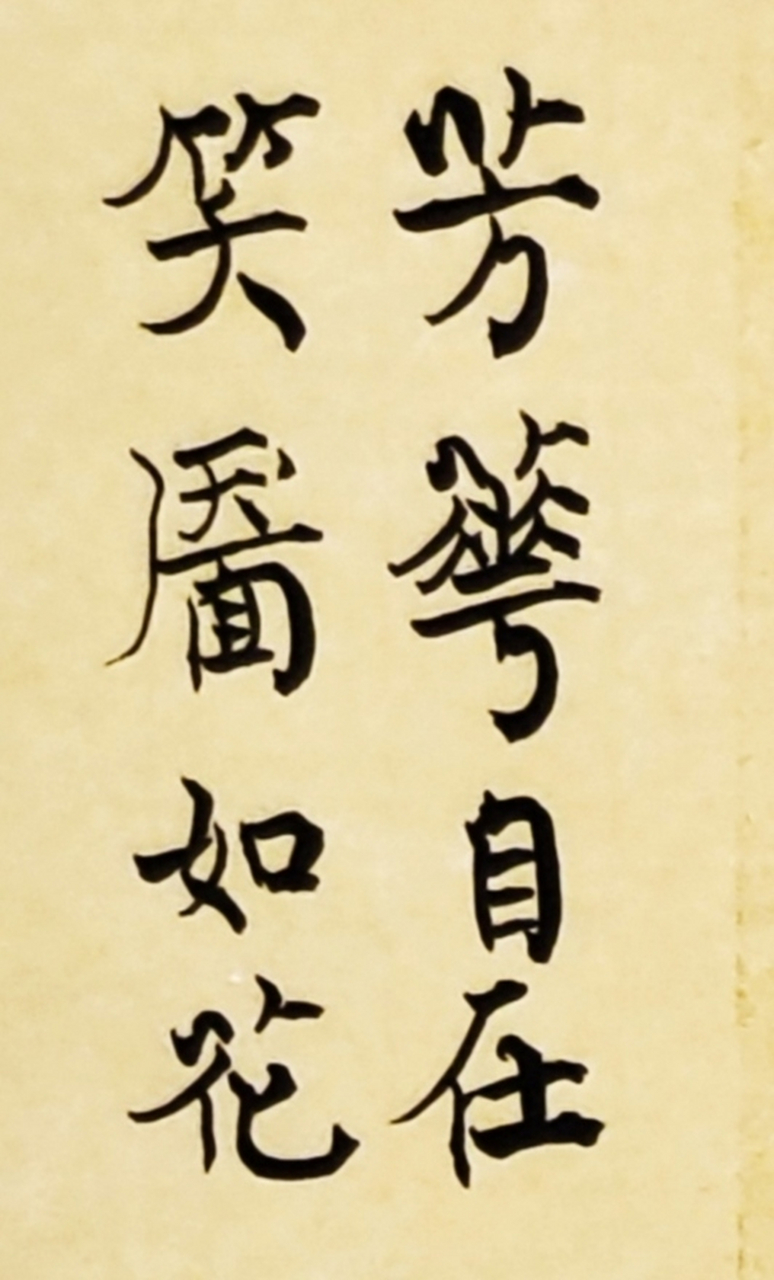 芳華自在
笑靨如花